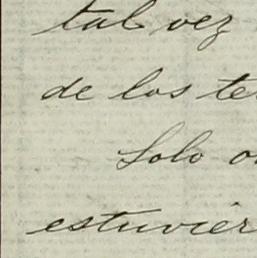 tal vez
de los te
Solo o
estuvier